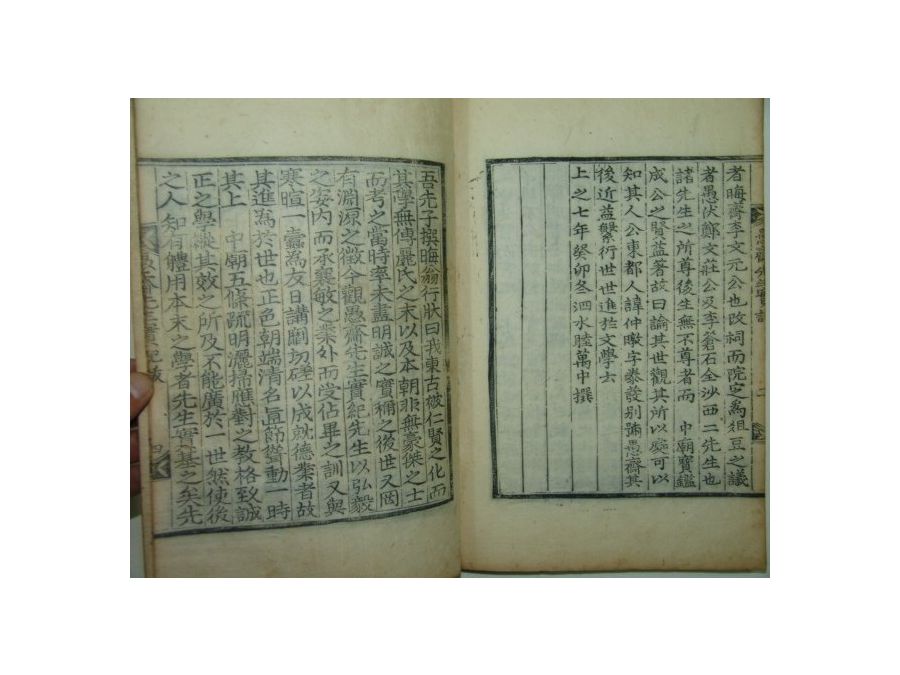 者晦齋李文元公也改祠而院定爲俎豆之議
者愚伏鄭文莊公及李蒼石全沙西二先生也
諸先生之所尊後生無不尊者而 中廟寶鑑
成公之賢益著故曰論其世觀其所以發可以
知其人公東都人諱仲暾字泰發別號愚齋其
後近益繁衍世世進於文學云
上之七年癸卯冬泗水睦萬中撰
吾先子撰晦翁行狀曰我東古被仁賢之化而
其學無傳麗氏之末以及本朝非無豪傑之士
而考之當時率未盡明誠之實稱之後世又罔
有淵源之徵今觀愚齋先生實紀先生以弘毅
之姿內而承襄敏之業外而受佔畢之訓又與
寒暄一蠹爲友日講闢切磋以成就德業者故
其進爲於世也正色朝端清名直節聳動一時
其上 中朝五條疏明灑掃應對之教格致誠
正之學縱其效之所及不能廣於一世然使後
之人知有體用本末之學者先生實基之矣先